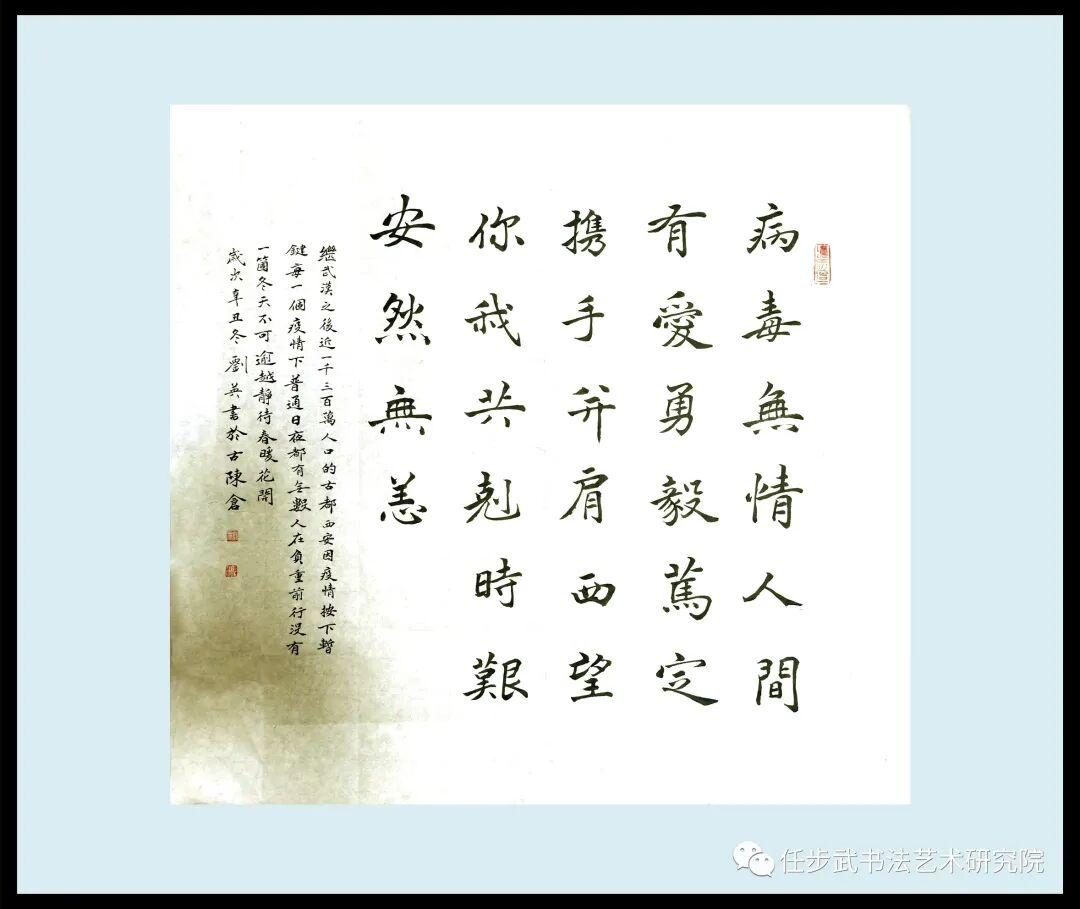 病毒無情人間
有愛勇毅篤定
携手并肩西望
你我共剋時艱
安然無恙
繼武漢之後近一千三百萬人口的古都西安因疫情按下暫
鍵每一個疫情下普通日夜都有無數人在負重前行沒有
一箇冬天不可逾越靜待春暖花開
歲次辛丑冬劉英書於古陳倉
任步武书法艺术研究院